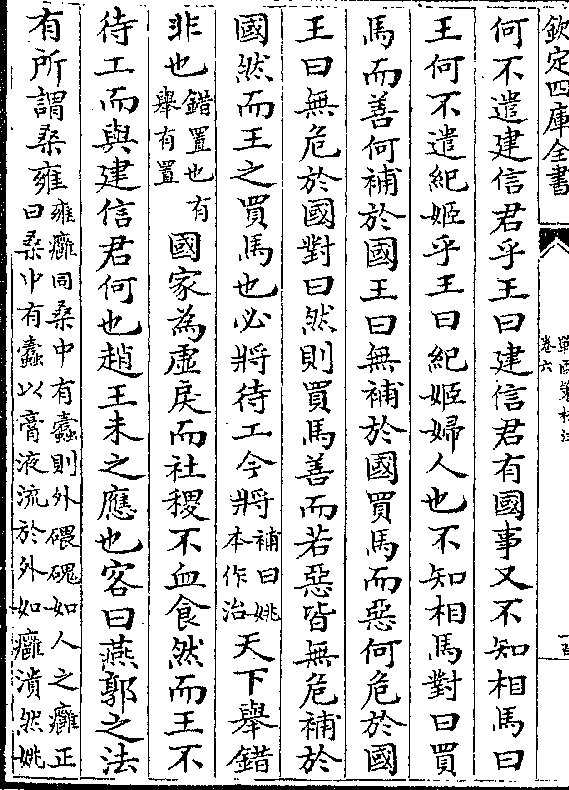 欽定四庫全書
戰國策校注
卷六
何不遣建信君乎王曰建信君有國事又不知相馬曰
王何不遣紀姬乎王曰紀姬婦人也不知相馬對曰買
馬而善何補於國王曰無補於國買馬而惡何危於國
王曰無危於國對曰然則買馬善而若惡皆無危補於
國然而王之買馬也必將待工今將補曰姚本作治天下舉錯
非也錯置也有舉有置國家為虛戾而社稷不血食然而王不
待工而與建信君何也趙王未之應也客曰燕郭之法
有所謂桑雍雍癰同桑中有蠹則外碨磈如人之癰正曰桑中有蠹以膏液流於外如癰潰然姚